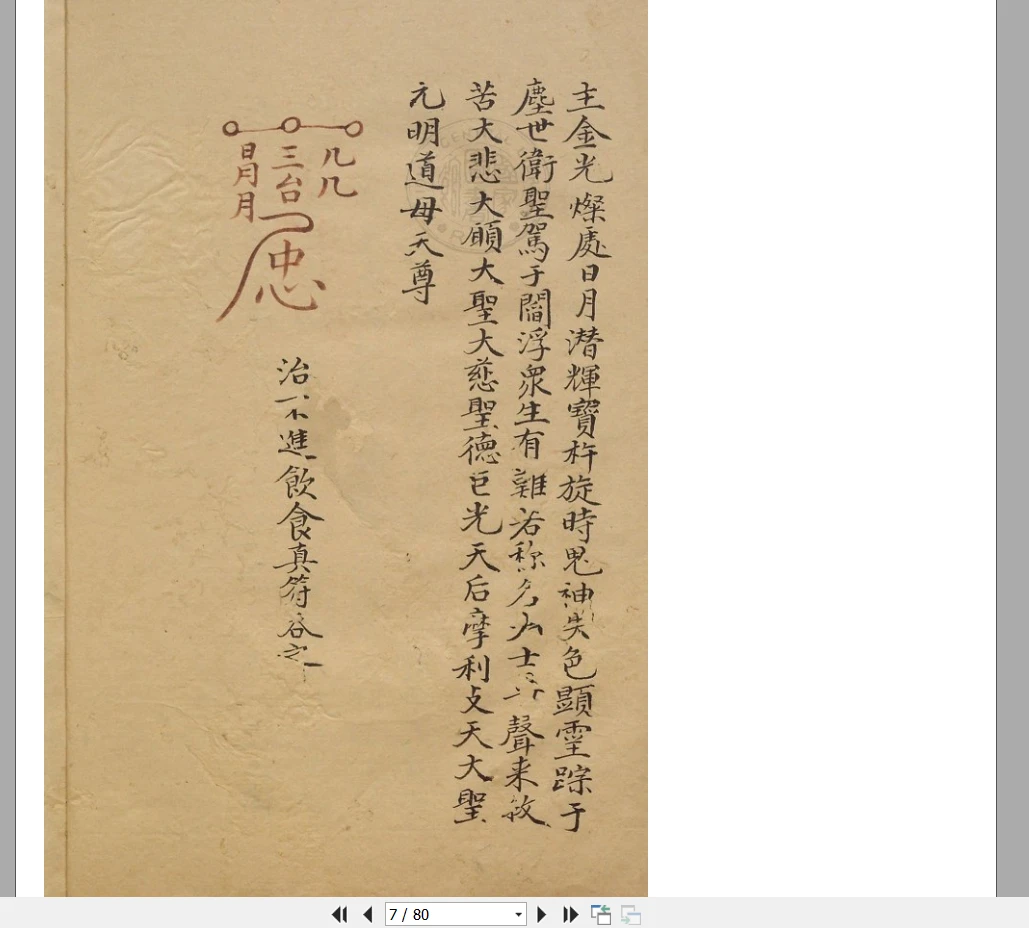 主金光燦處日月潜輝寶杵旋時鬼神失色顯霊踪于
塵世衛聖駕于閻浮衆生有難若称名士聲来救
苦大悲大願大聖大慈聖德巨光天后摩利支天大聖
元明道母天尊
几几
三台
日月月
忠
治一不進飲食真符吞之
7 / 80